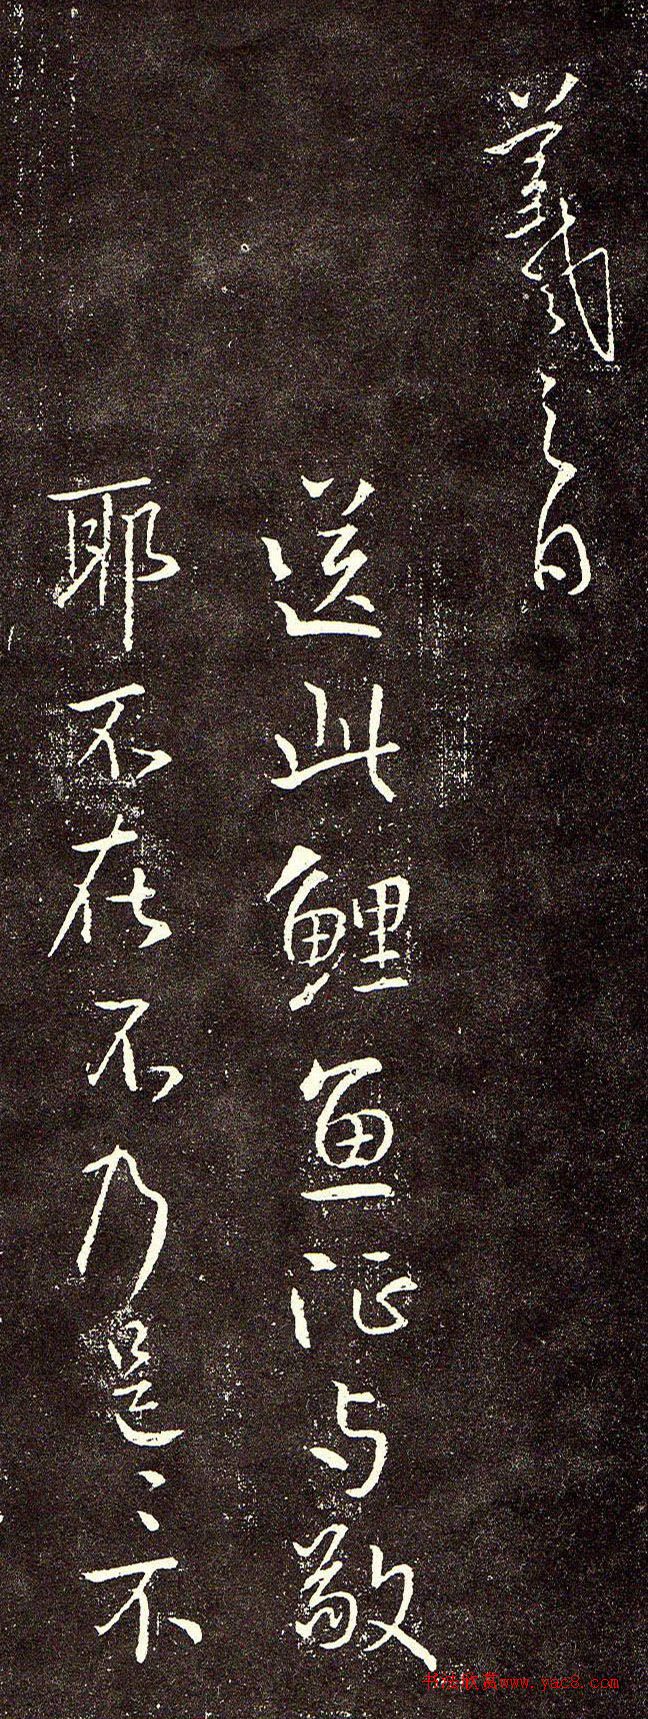 羲之白
送此鯉魚征与敬
耶不在不乃是
书法欣赏www.yac8.com